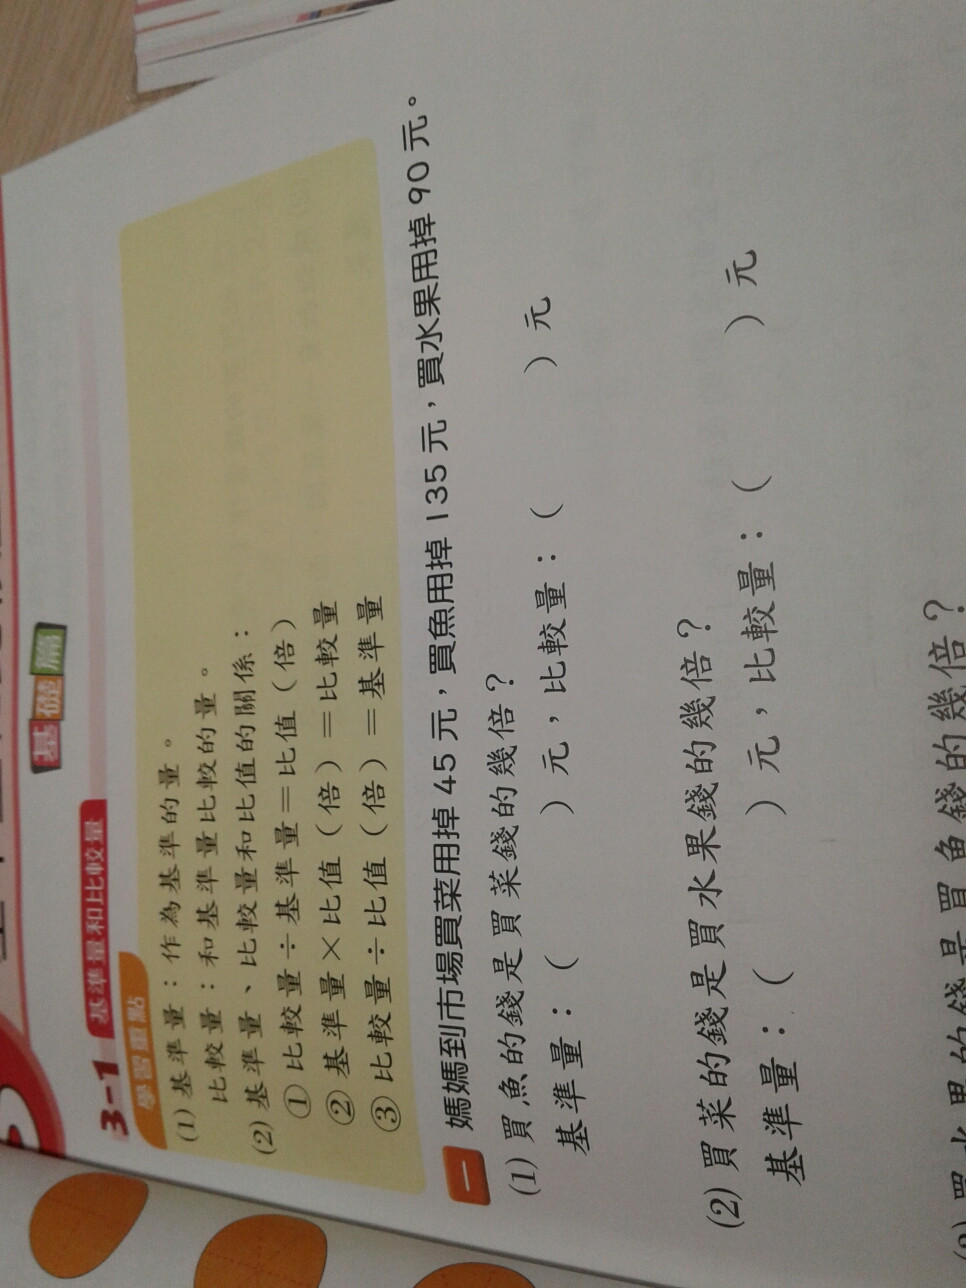 基礎篇
3-1 基準量和比較量
學習重點
(1) 基準量：作為基準的量。
比較量：和基準量比較的量。
(2) 基準量、比較量和比值的關係：
① 比較量÷基準量＝比值（倍）
② 基準量×比值（倍）＝比較量
③ 比較量÷比值（倍）＝基準量
一 媽媽到市場買菜用掉 45 元，買魚用掉 135 元，買水果用掉 90 元。
(1) 買魚的錢是買菜錢的幾倍？
基準量：（ ）元，比較量：（ ）元
(2) 買菜的錢是買水果錢的幾倍？
基準量：（ ）元，比較量：（ ）元
(3) 買水果的錢是買魚錢的幾倍？